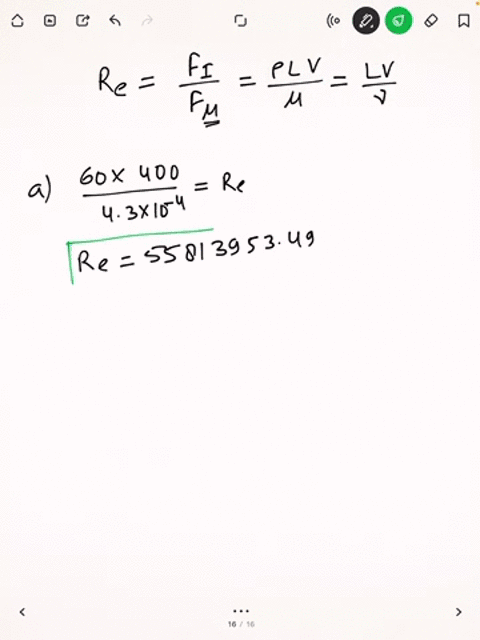 Re = FI / Fμ = ρLV / μ = LV / ν
a) 60 × 400 / 4.3×10⁻⁴ = Re
Re = 55813953.49
16 / 16